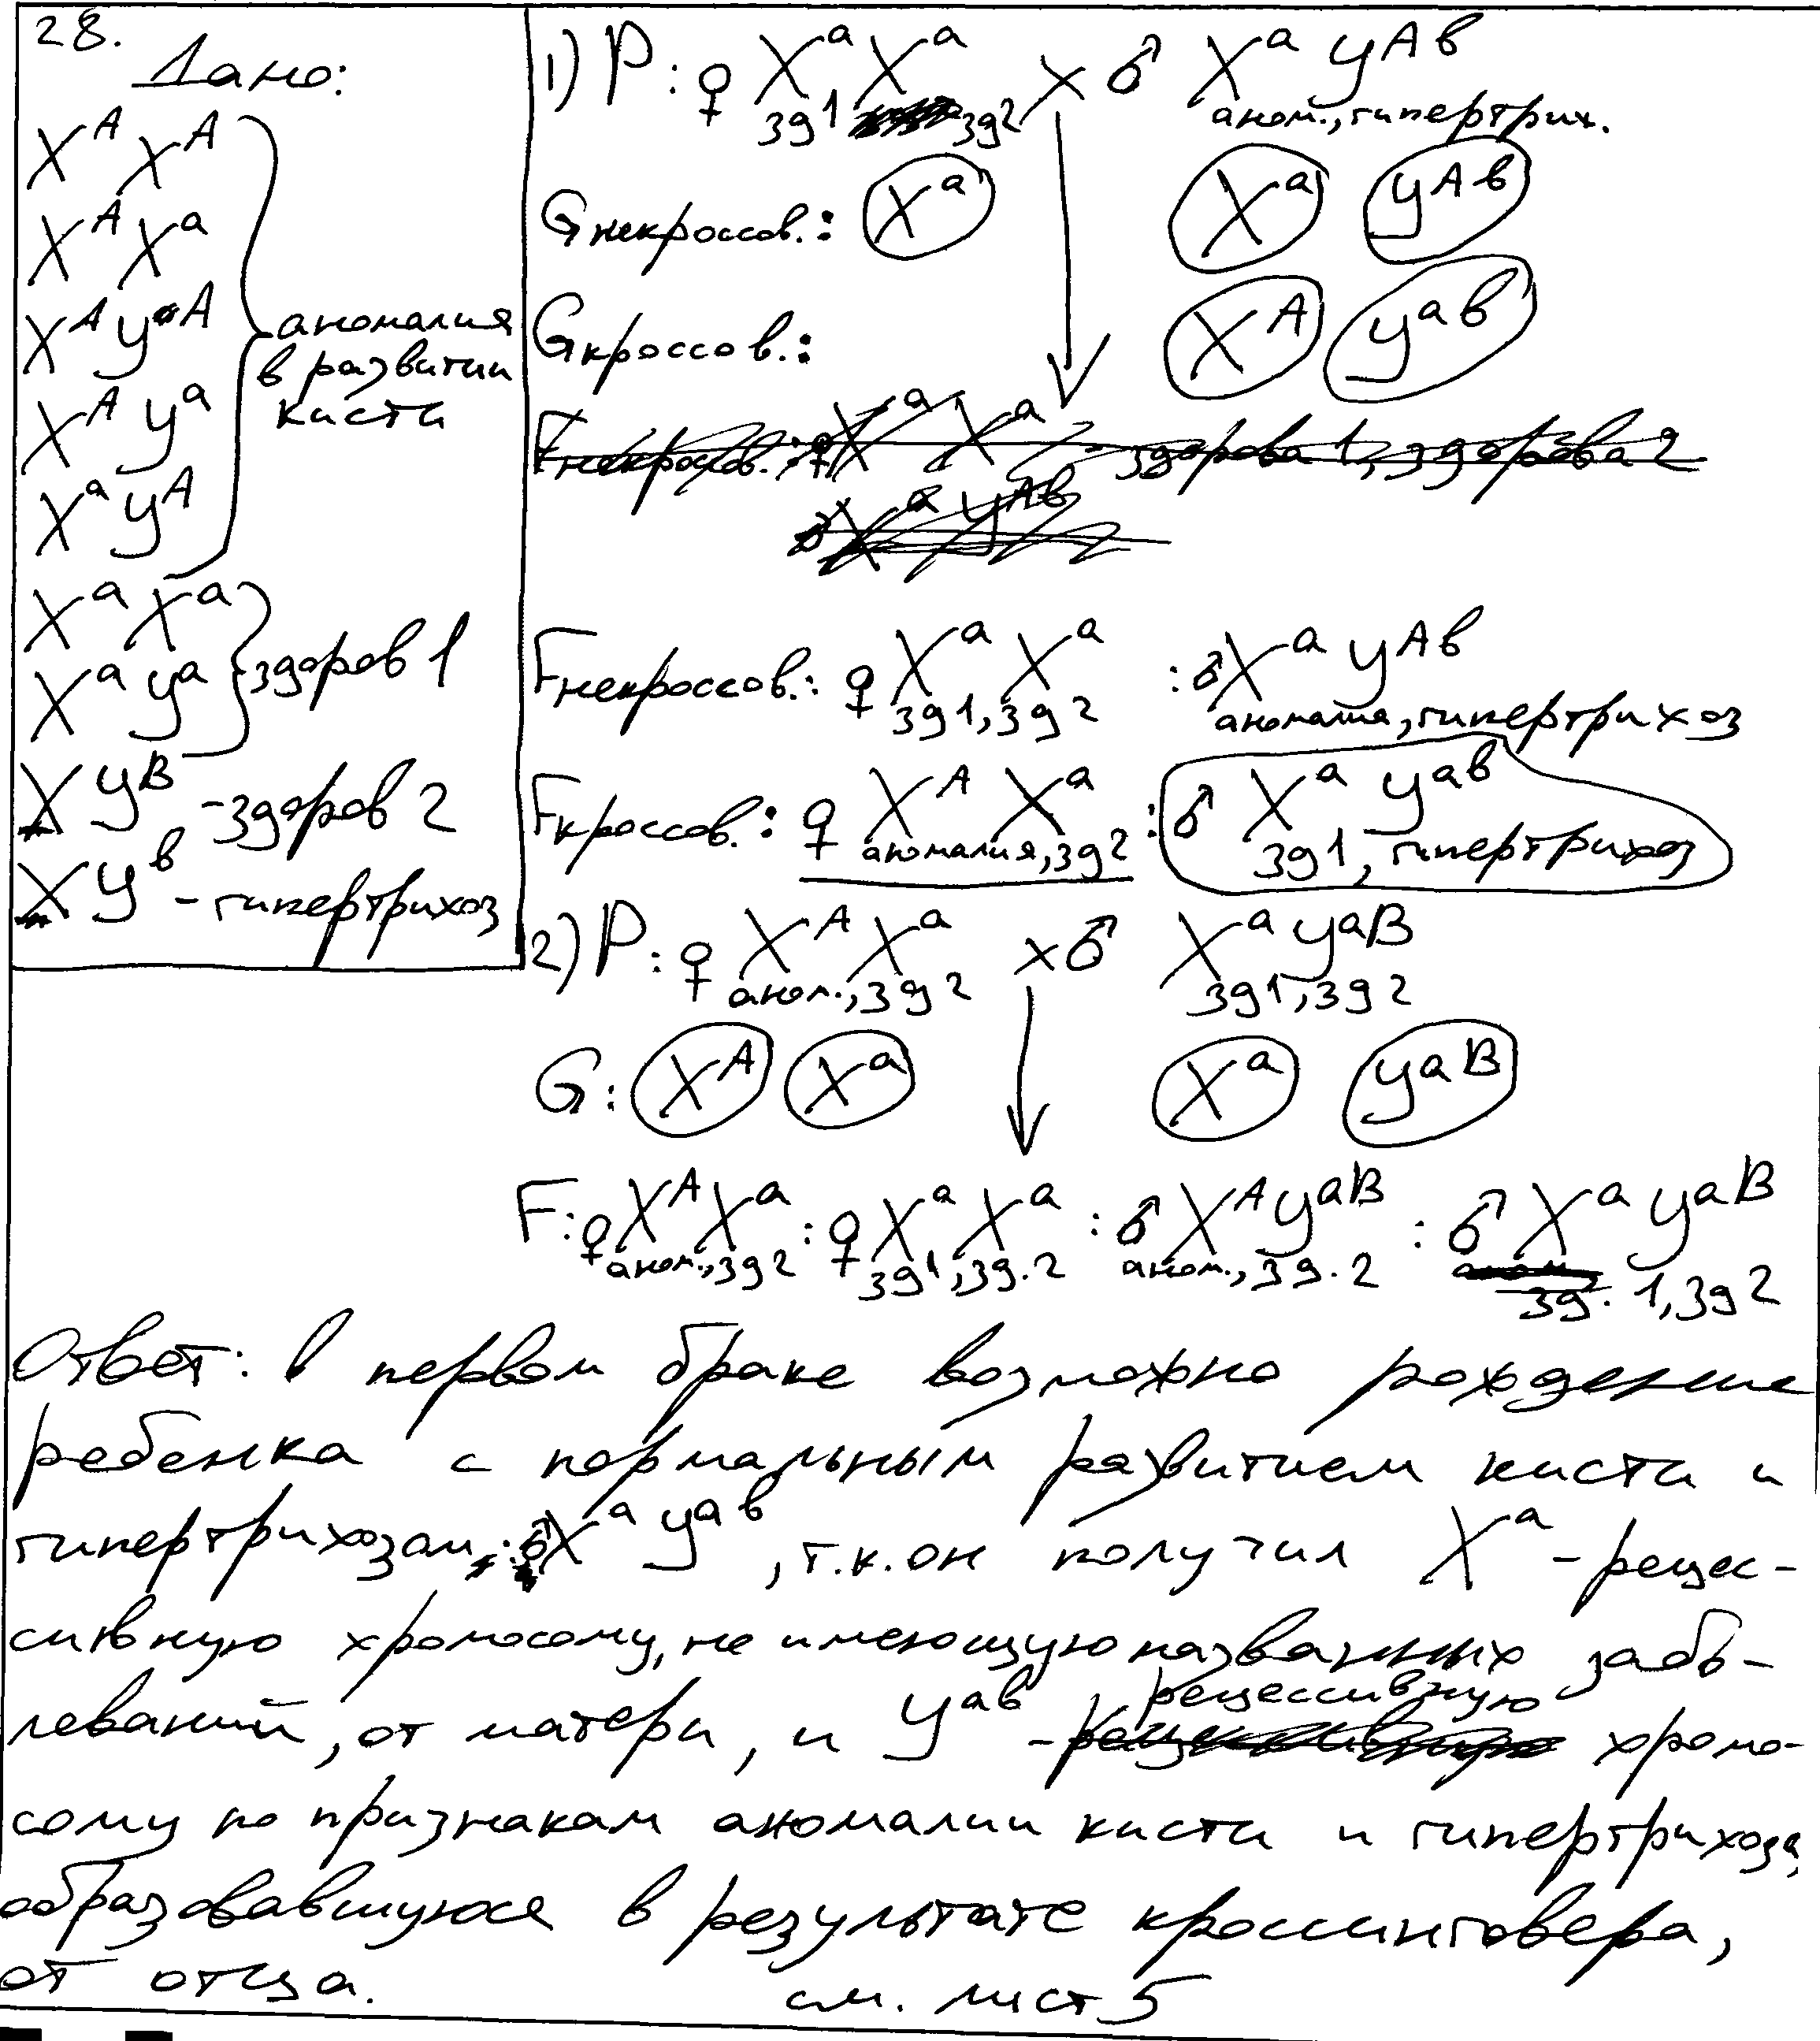 28.
Дано:
X^A X^A
X^A X^a
X^A y^A
X^A y^a
X^a y^A
аномалия
в развитии
кисти
X^a X^a
X^a y^a
здоров 1
X y^B - здоров 2
X y^в - гипертрихоз
1) P: ♀ X^a X^a × ♂ X^a y^Aв
зд1 зд2 аном., гипертрих.
G некроссов.: X^a X^a y^Aв
G кроссов.: X^A y^aв
F некроссов.: ♀ X^a X^a - здорова 1, здорова 2
♂ X^a y^Aв
F некроссов.: ♀ X^a X^a : ♂ X^a y^Aв
зд1, зд2 аномалия, гипертрихоз
F кроссов.: ♀ X^A X^a : ♂ X^a y^aв
аномалия, зд2 зд1, гипертрихоз
2) P: ♀ X^A X^a × ♂ X^a y^aB
аном., зд2 зд1, зд2
G: X^A X^a X^a y^aB
F: ♀ X^A X^a : ♀ X^a X^a : ♂ X^A y^aB : ♂ X^a y^aB
аном., зд2 зд1, зд.2 аном., зд.2 зд. 1, зд2
Ответ: в первом браке возможно рождение
ребенка с нормальным развитием кисти и
гипертрихозом: ♂ X^a y^aв, т.к. он получил X^a - рецес-
сивную хромосому, не имеющую названных забо-
леваний, от матери, и y^aв - рецессивную хромо-
сому по признакам аномалии кисти и гипертрихоза,
образовавшуюся в результате кроссинговера,
от отца.
см. лист 5